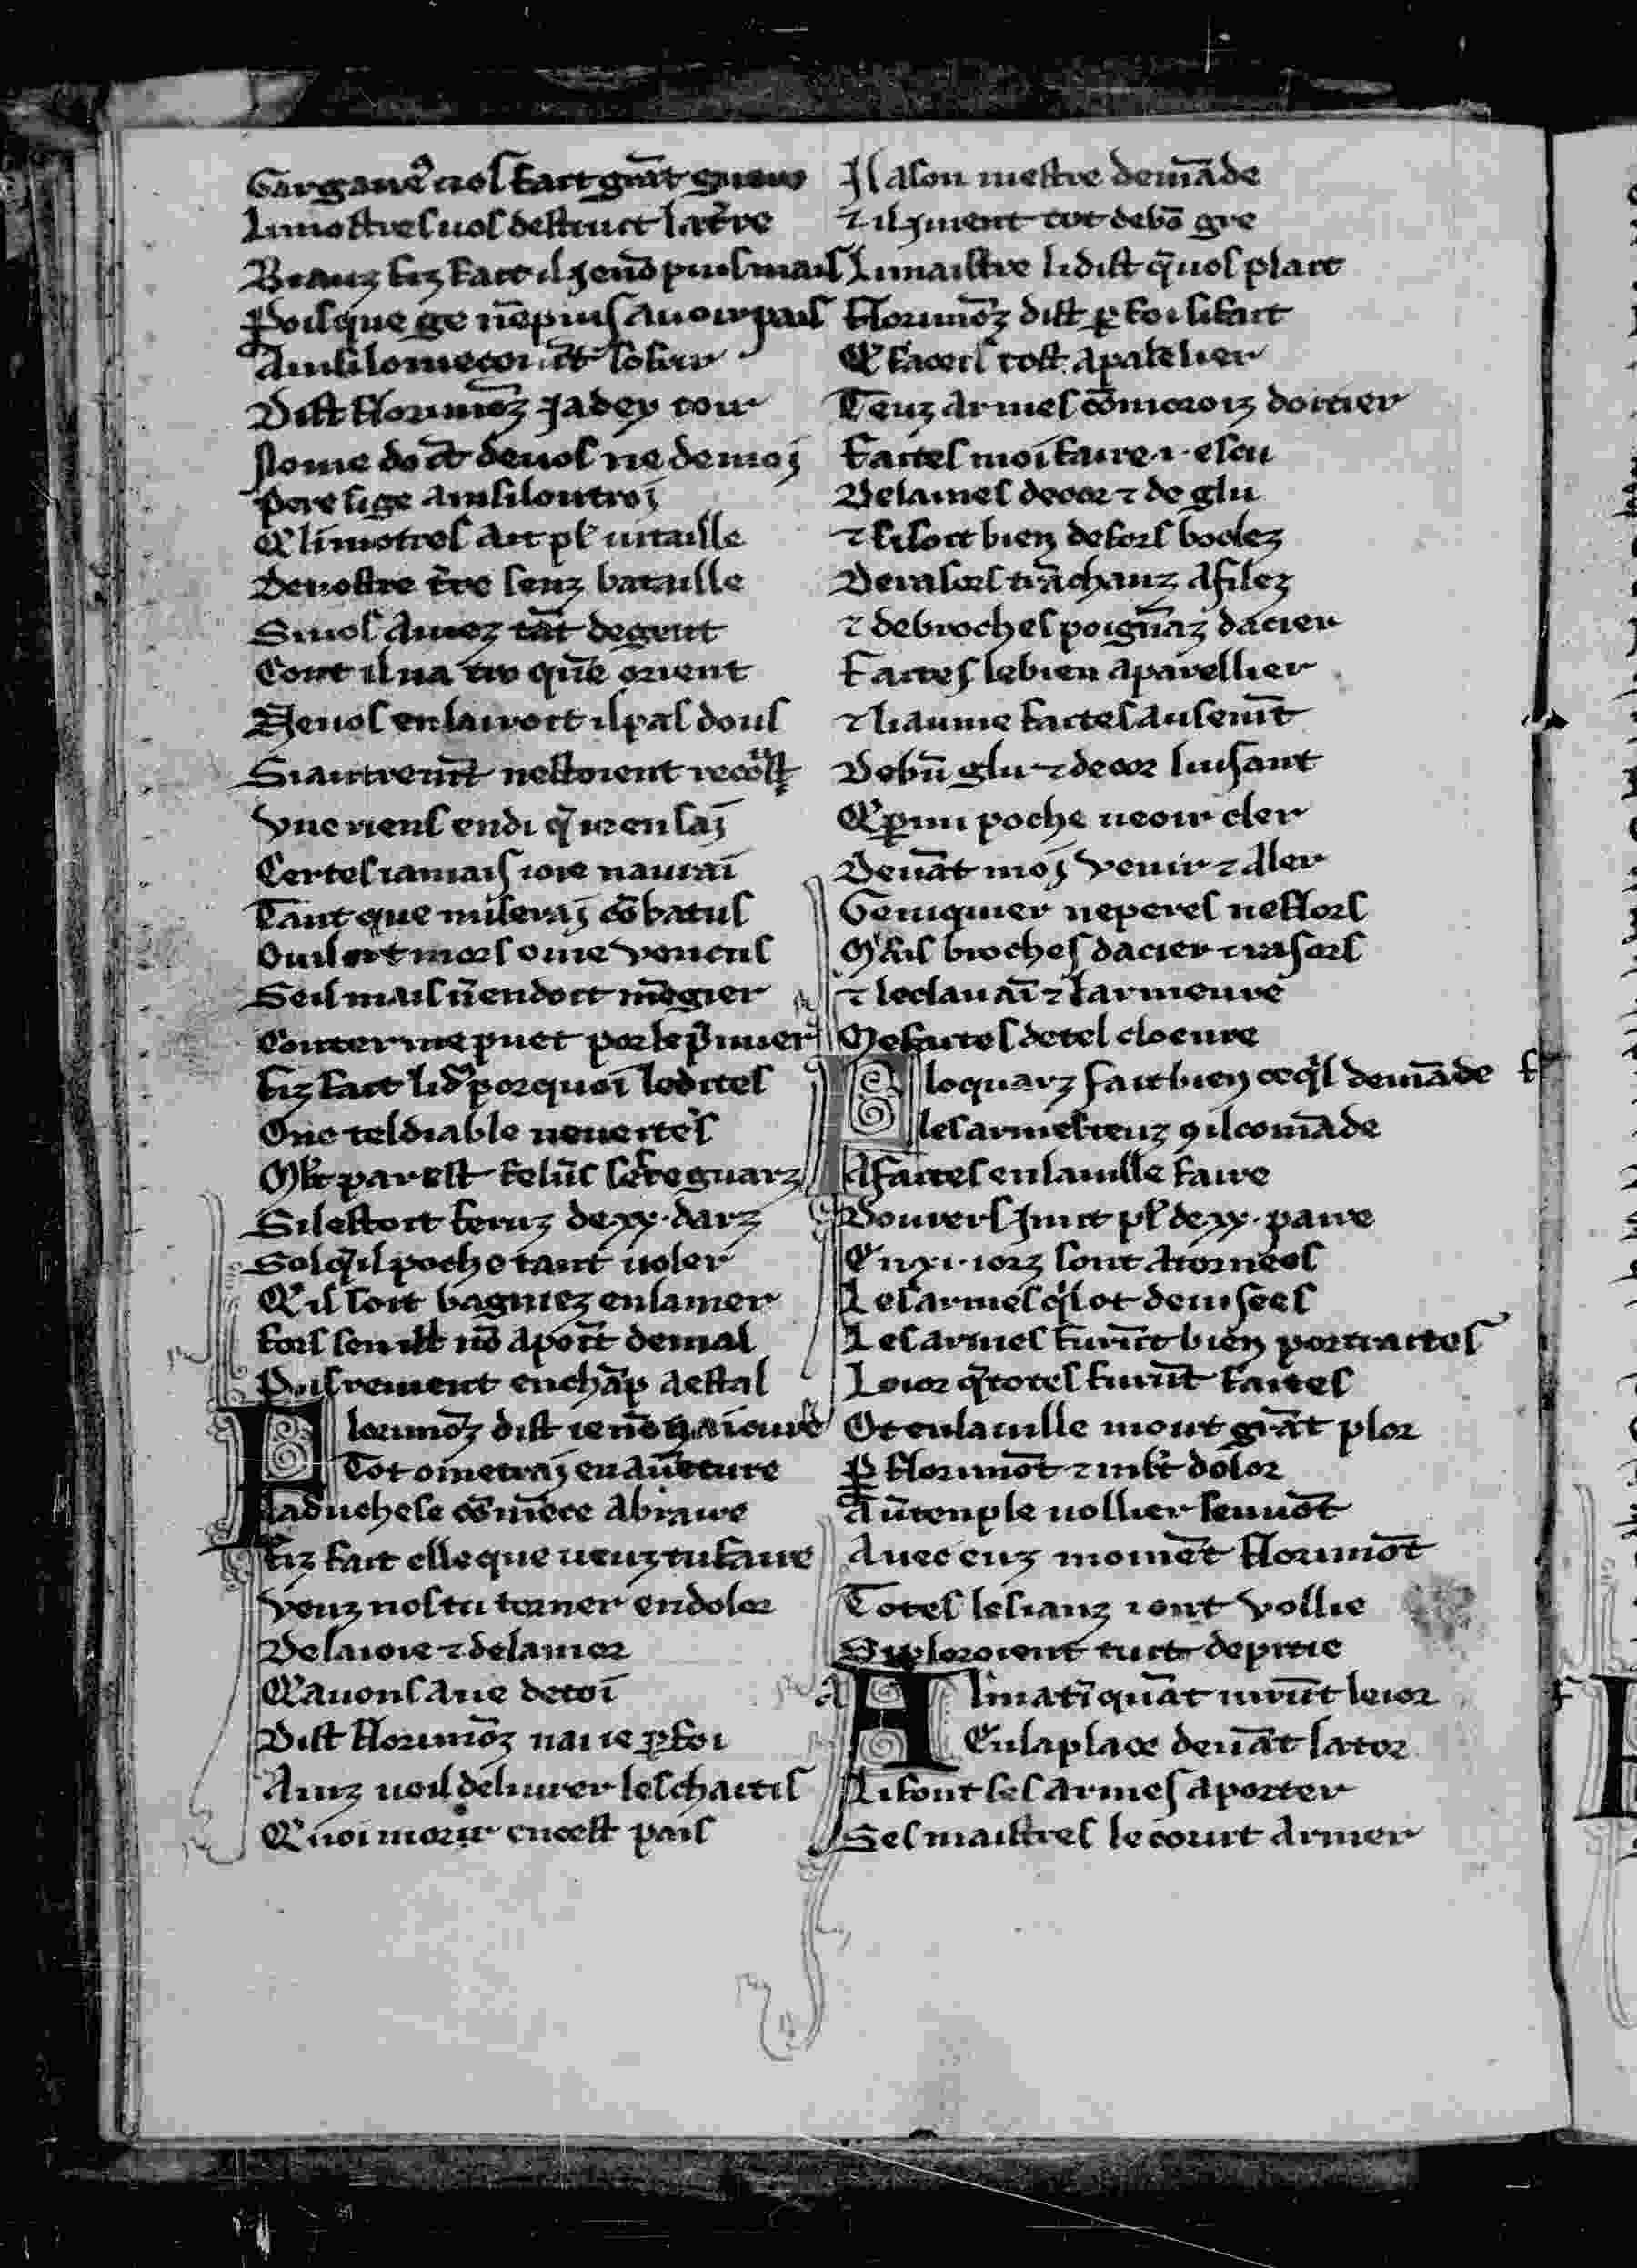 Garganeꝰ uos fait grāt guerre
Li mostres uos destruit la tr̄e
Biauz fiz fait il j en uō puis mais
Pois que ge nē puis auoir pais
Ainsi lo me couīt sofrir
Dist florimōz ja dex toir
Nome doīt de uos ne de moj
Pere si ge ainsi lou troj
Q̇ li motres ait pl̉ uitaille
De uostre tr̄e senz bataille
Si uos auez tāt de gent
Cont il na tro quē orient
De uos en lairoit il pas dous
Si autremt̄ nestoient recost
Vne riens en di q̄ ie en saj
Certes iamais ioie naurai
Tant que mi seraj cōbatus
Ou il ert mors o me vencus
Se il mais n̄en doit mēgier
Conter me puet por le p̄mier
Fiz fait li dꝰ por quoi le dites
Onc tel diable ne ueites
Ml̄t par est felūs ses reguarz
Sil estoit feruz de .xx. darz
Sol q̄l poche tant uoler
Q̇ il soit bagniez en la mer
Fors sen ist nō aport̄ de mal
Puis reuient en chāp a estal
Florimōz dist ie nō ai cure
Tot o metraj en auēture
La duchese cōmēce a braire
Fiz fait elle que ueuz tu faire
Veuz nos tu torner en dolor
De la ioie ⁊ de lamor
Q̇ auons aue de toi
Dist florimōz nai ie ꝑ foi
Ainz uoil deliurer les chaitis
Q̇ uoi morir en cest pais
Il a son mestre demāde
⁊ il j uient tot de bō gre
Li maistre li dist q̄ uos plait
Florimōz dist ꝑ foi si fait
Q̇ faceis tost apalelier
Teuz armes cōm croiz doitier
Faites moi faire .i. escu
De lames de cor ⁊ de glu
⁊ si soit bien de fors boclez
De rasors trāchanz afilez
⁊ de broches poignāz dacier
Faites le bien aparellier
⁊ hiaume faites ausemt̄
De bū glu ⁊ de cor luisant
Q̇ ꝑ mi poche ueoir cler
Deuāt moj venir ⁊ aler
Gen i quier ne peres ne flors
Mais broches dacier ⁊ rasors
⁊ le clauaī ⁊ larmeure
Me faites de tel cloeure
Floquarz fait bien ce q̄l demāde
Les armes teuz ꝯ il comāde
A faites en la uille faire
Douuers j mit pl̉ de .xx. paire
En xi. iorz sont atornees
Les armes q̄l ot deuisees
Les armes furīt bien portraites
Lo ior q̄ totes furūt faites
Ot en la uille mout grāt plor
ꝑ florimōt ⁊ ml̄t dolor
Aū temple uollier sen uōt
Auec euz moinēt florimōt
Totes les lanz i ont vollie
Si ploroient tuit de pitie
Al matī quāt uirūt le ior
En la place deuāt la tor
Li font ses armes aporter
Ses maistres le court armer